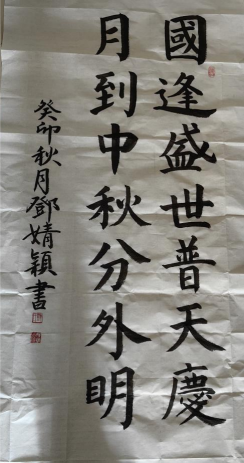 國逢盛世普天慶
月到中秋分外明
癸卯秋月鄧婧穎書